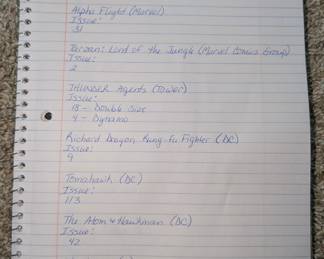 Alpha Flight (Marvel)
Issue:
31
Tarzan: Lord of the Jungle (Marvel Comics Group)
Issue:
2
THUNDER Agents (Tower)
Issue:
18 - Double Size
4 - Dynamo
Richard Dragon Kung-Fu Fighter (DC)
Issue:
9
Tomahawk (DC)
Issue:
113
The Atom & Hawkman (DC)
Issue:
42